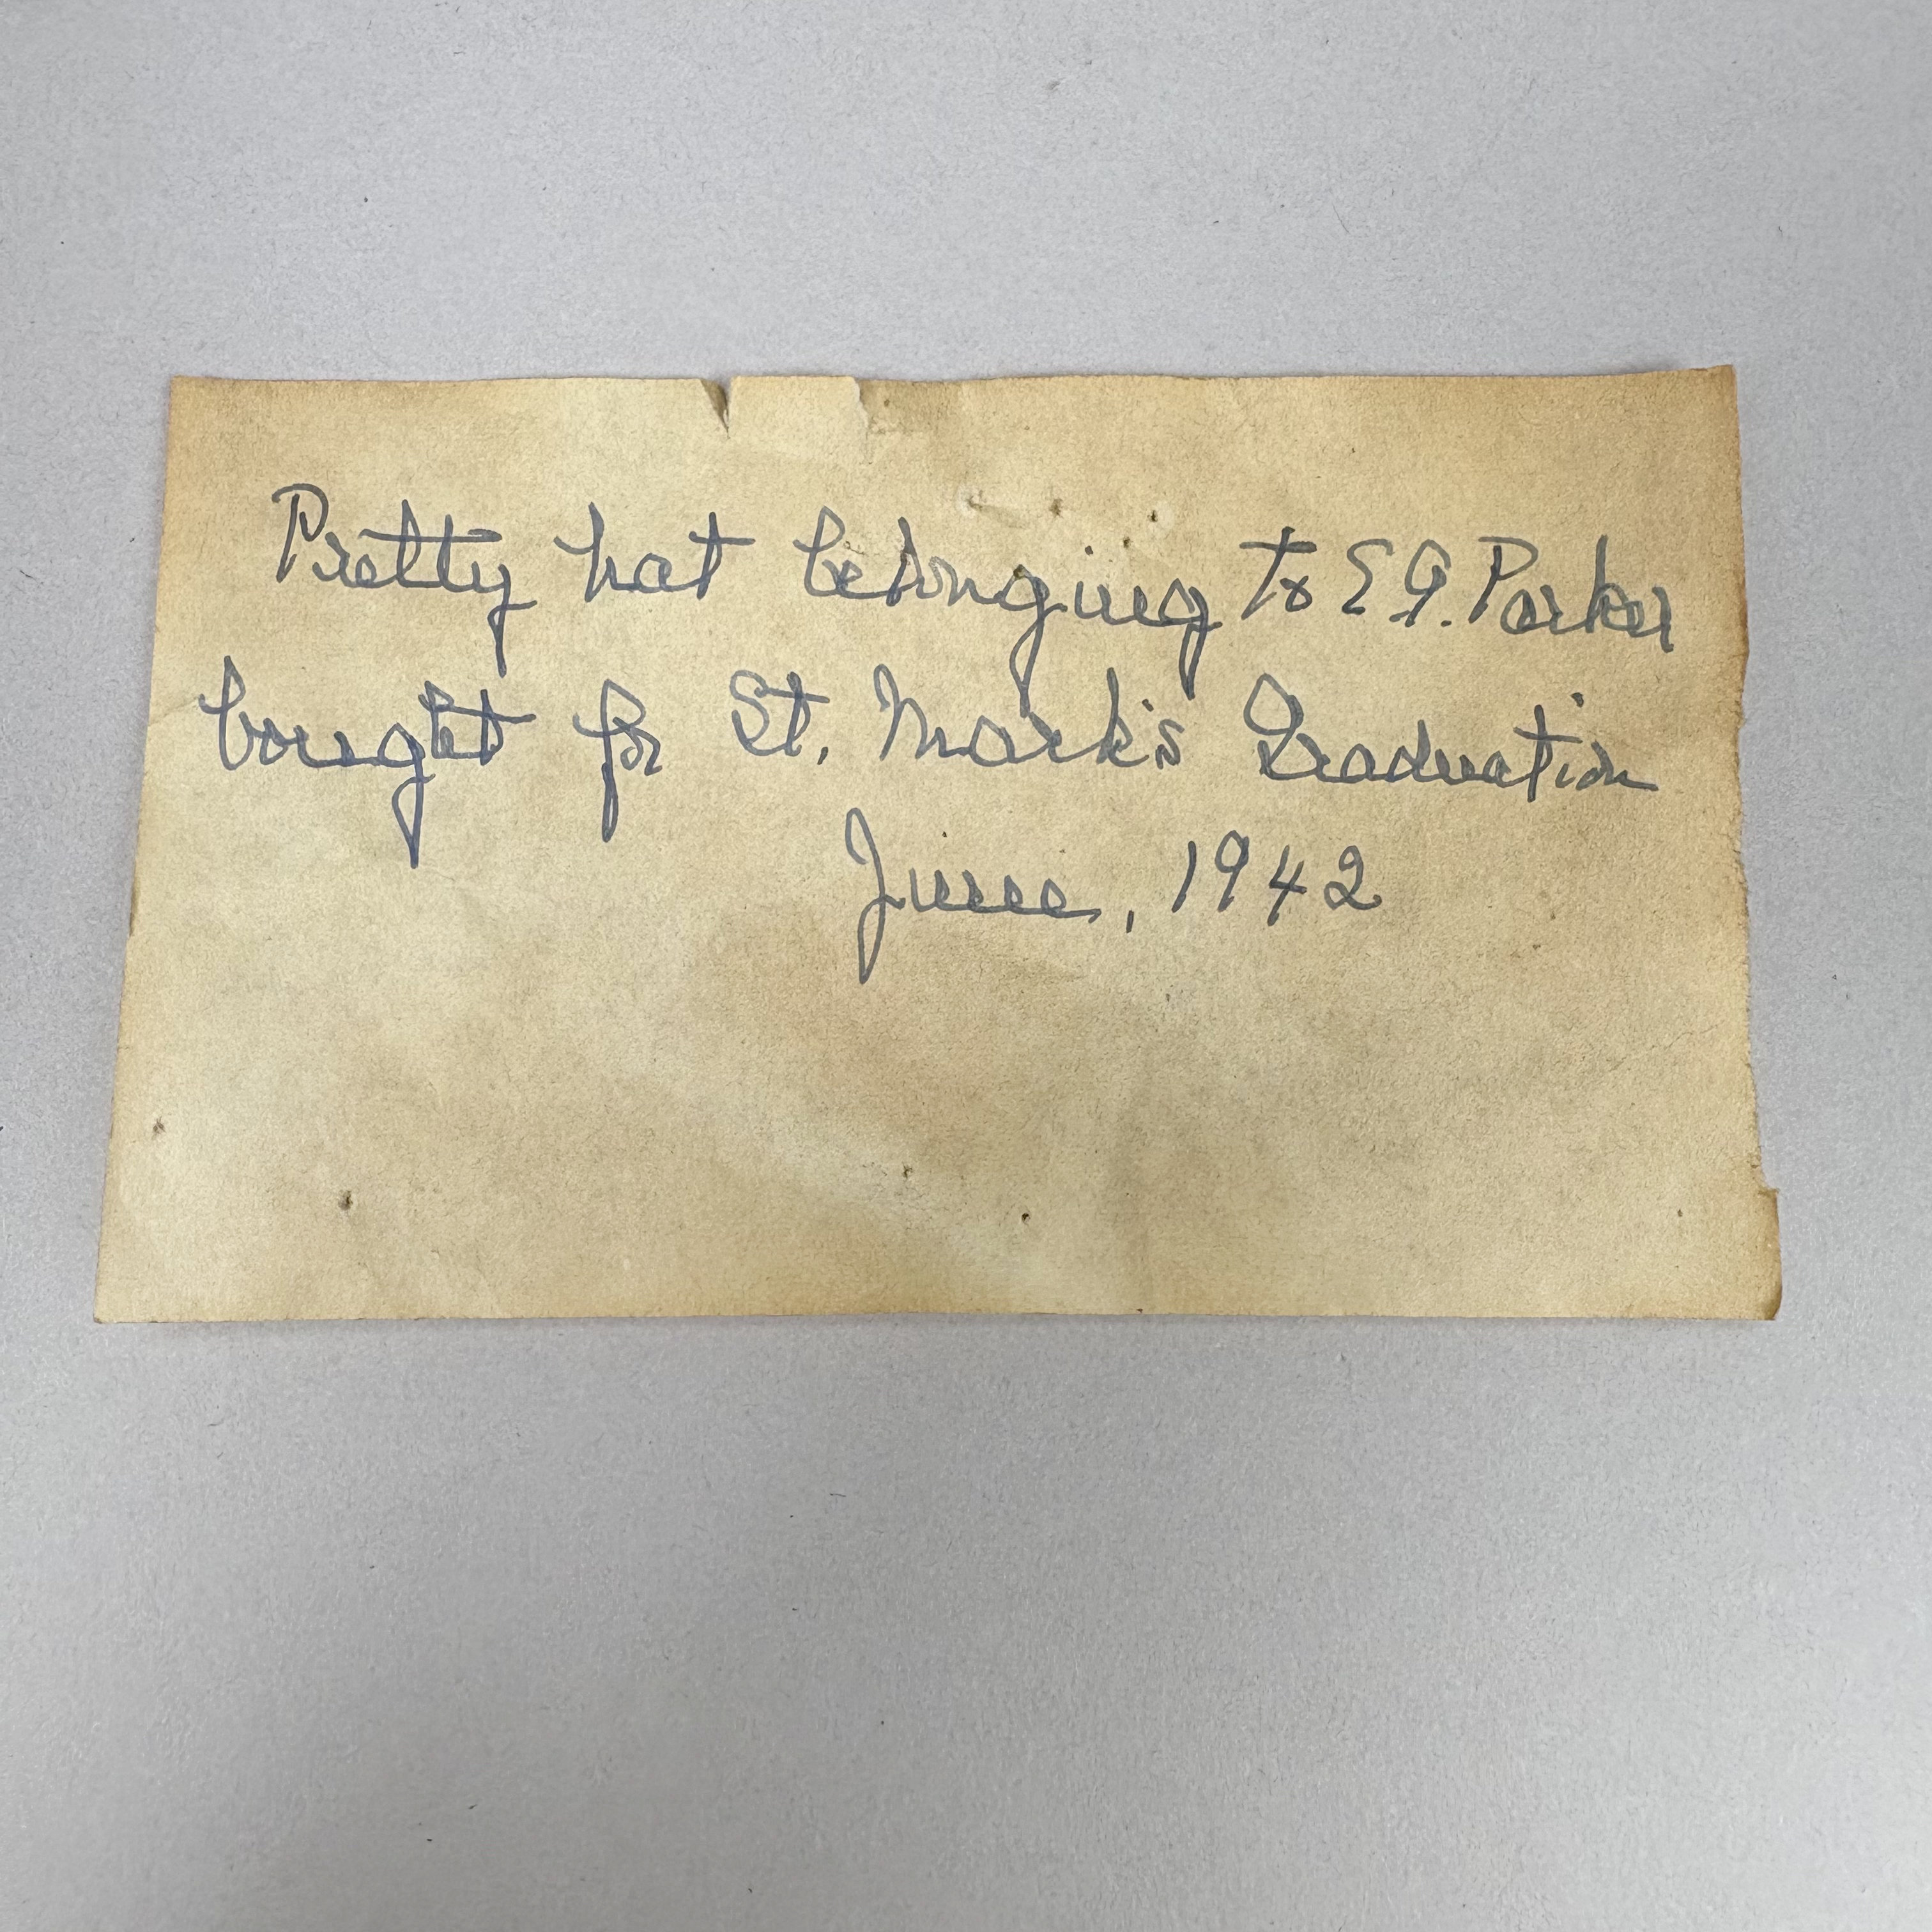 Pretty hat belonging to E G. Parker
bought for St. Mark's Graduation
June, 1942